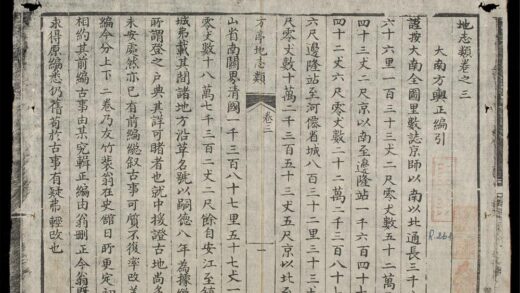 地志類卷之三
大南方輿正編引
謹按大南全圖里數誌京師以南以北通長三千
六十六里一百三十三丈二尺零丈數五十二萬
四十三丈二尺京以南至邊隆站一千六百四十
四十二丈六尺零丈數二十二萬二千三百八十
六尺邊隆站至河僊省城八百三十二里三十三
尺零丈數十萬二千三百五十三丈五尺京以北至
方亭地志類 卷三 一
山省南關界清國一千三百八十七里五十七丈一
零丈數十八萬七千三百二丈二尺餘自安江至鎮
城弗載其間諸地方沿革名號以嗣德八年為據
所謂登之户典其詳可賭者也就中援證古地尚多
未安處然亦已有前編統叙古事可質不復率改
編今分上下二卷乃友竹裴翁在史館日所更定初
相約其前編古事由某輯正編由翁刪正今翁既
未得原編悉仍舊於古事有疑弗輕改也